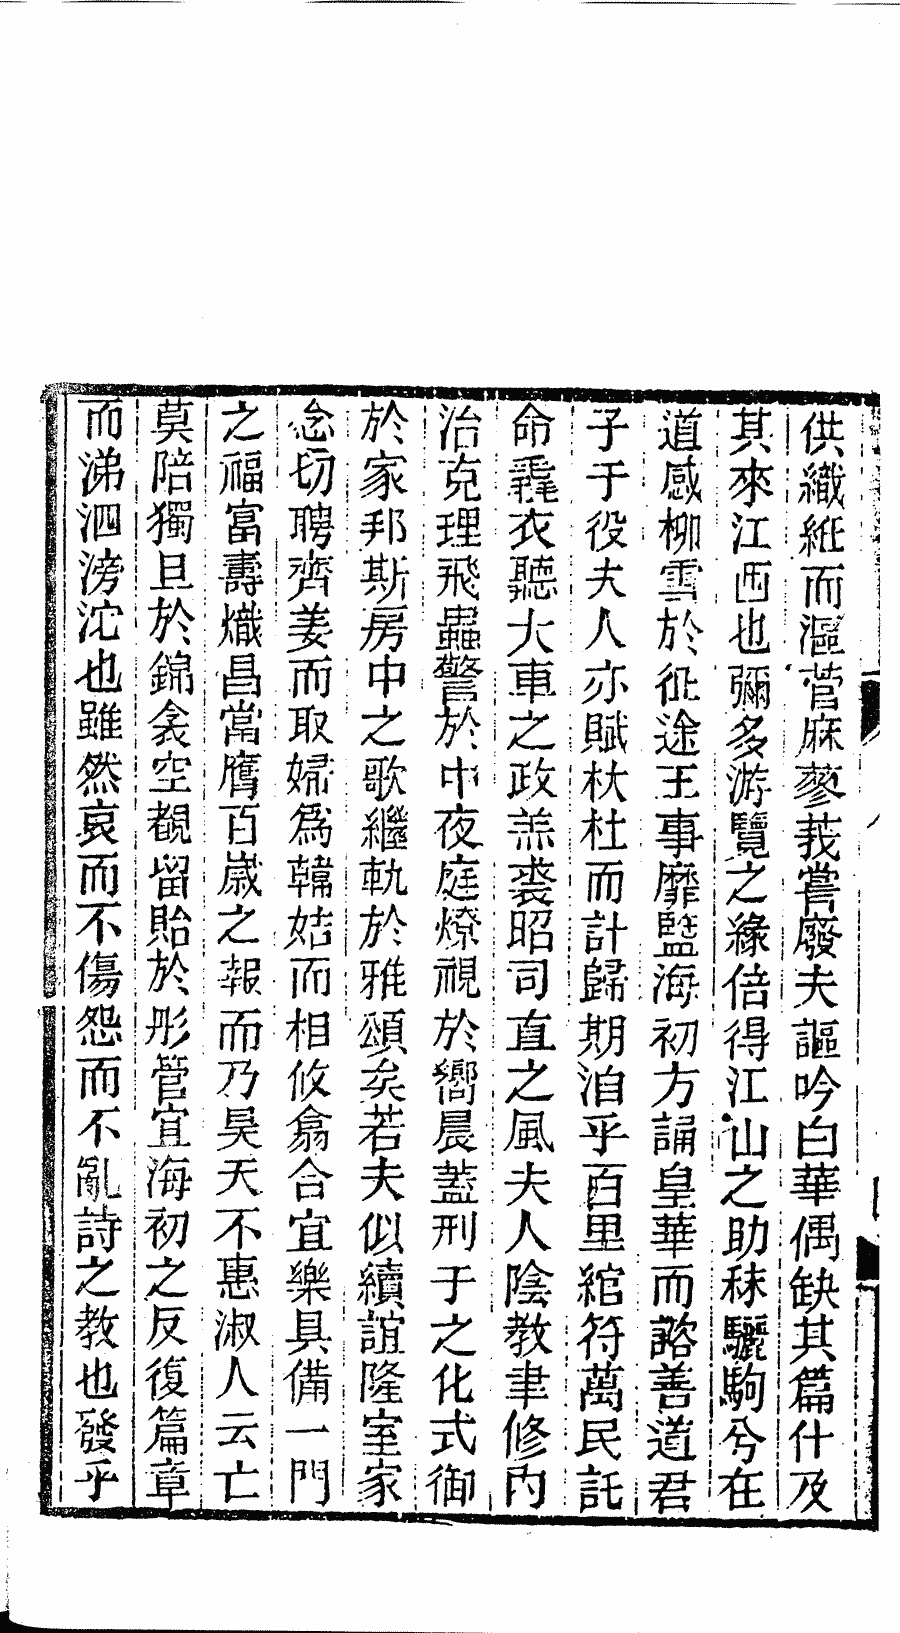 供織紝而漚菅麻蓼莪嘗廢夫謳吟白華偶缺其篇什及
其來江西也彌多游覽之緣倍得江山之助秣驪駒兮在
道感柳雪於征途王事靡盬海初方誦皇華而諮善道君
子于役夫人亦賦杕杜而計歸期洎乎百里綰符萬民託
命毳衣聽大車之政羔裘昭司直之風夫人陰教聿修內
治克理飛蟲警於中夜庭燎視於嚮晨蓋刑于之化式御
於家邦斯房中之歌繼軌於雅頌矣若夫似續誼隆室家
念切聘齊姜而取婦為韓姞而相攸翕合宜樂具備一門
之福富壽熾昌當膺百歲之報而乃昊天不惠淑人云亡
莫陪獨旦於錦衾空覩留貽於彤管宜海初之反復篇章
而涕泗滂沱也雖然哀而不傷怨而不亂詩之教也發乎